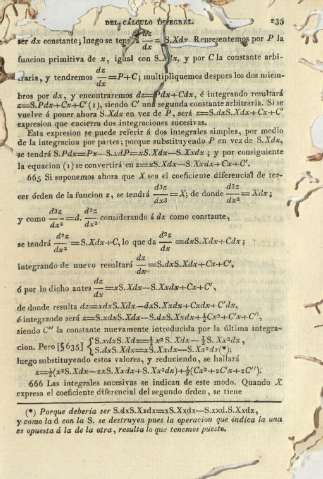 DEL CÁLCULO INTEGRAL. 235
ser dx constante; luego se tendrá dz/dx = S.Xdx. Representemos por P la
funcion primitiva de x, igual con S.Xdx, y por C la constante arbi-
traria, y tendremos dz/dx = P+C; multipliquemos despues los dos miem-
bros por dx, y encontraremos dz=Pdx+Cdx, é integrando resultará
z=S.Pdx+Cx+C' (1), siendo C' una segunda constante arbitraria. Si se
vuelve á poner ahora S.Xdx en vez de P, será z=S.dxS.Xdx+Cx+C'
expresion que encierra dos integraciones sucesivas.
Esta expresion se puede referir á dos integrales simples, por medio
de la integracion por partes; porque substituyendo P en vez de S.Xdx,
se tendrá S.Pdx=Px—S.xdP=xS.Xdx—S.Xxdx; y por consiguiente
la equacion (1) se convertirá en z=xS.Xdx—S.Xxdx+Cx+C'.
665 Si suponemos ahora que X sea el coeficiente diferencial de ter-
cer órden de la funcion z, se tendrá d3z/dx3 = X; de donde d3z/dx2 = Xdx;
y como d3z/dx2 = d. d2z/dx2 considerando á dx como constante,
se tendrá d2z/dx2 = S.Xdx+C, lo que da d2z/dx = dxS.Xdx+Cdx;
integrando de nuevo resultará dz/dx = S.dxS.Xdx+Cx+C',
ó por lo dicho antes dz/dx = xS.Xdx—S.Xxdx+Cx+C',
de donde resulta dz=xdxS.Xdx—dxS.Xxdx+Cxdx+C'dx,
é integrando será z=S.xdxS.Xdx—S.dxS.Xxdx+½Cx²+C'x+C'',
siendo C'' la constante nuevamente introducida por la última integra-
cion. Pero [§635] { S.xdxS.Xdx=½x²S.Xdx—½S.Xx²dx,
S.dxS.Xxdx=xS.Xxdx—S.Xx²dx(*);
luego substituyendo estos valores, y reduciendo, se hallará
z=½(x²S.Xdx—2xS.Xxdx+S.Xx²dx)+½(Cx²+2C'x+2C'').
666 Las integrales sucesivas se indican de este modo. Quando X
expresa el coeficiente diferencial del segundo órden, se tiene
(*) Porque debería ser S.dxS.Xxdx=xS.Xxdx—S.xxd.S.Xxdx,
y como la d con la S. se destruyen pues la operacion que indica la una
es opuesta á la de la otra, resulta lo que tenemos puesto.